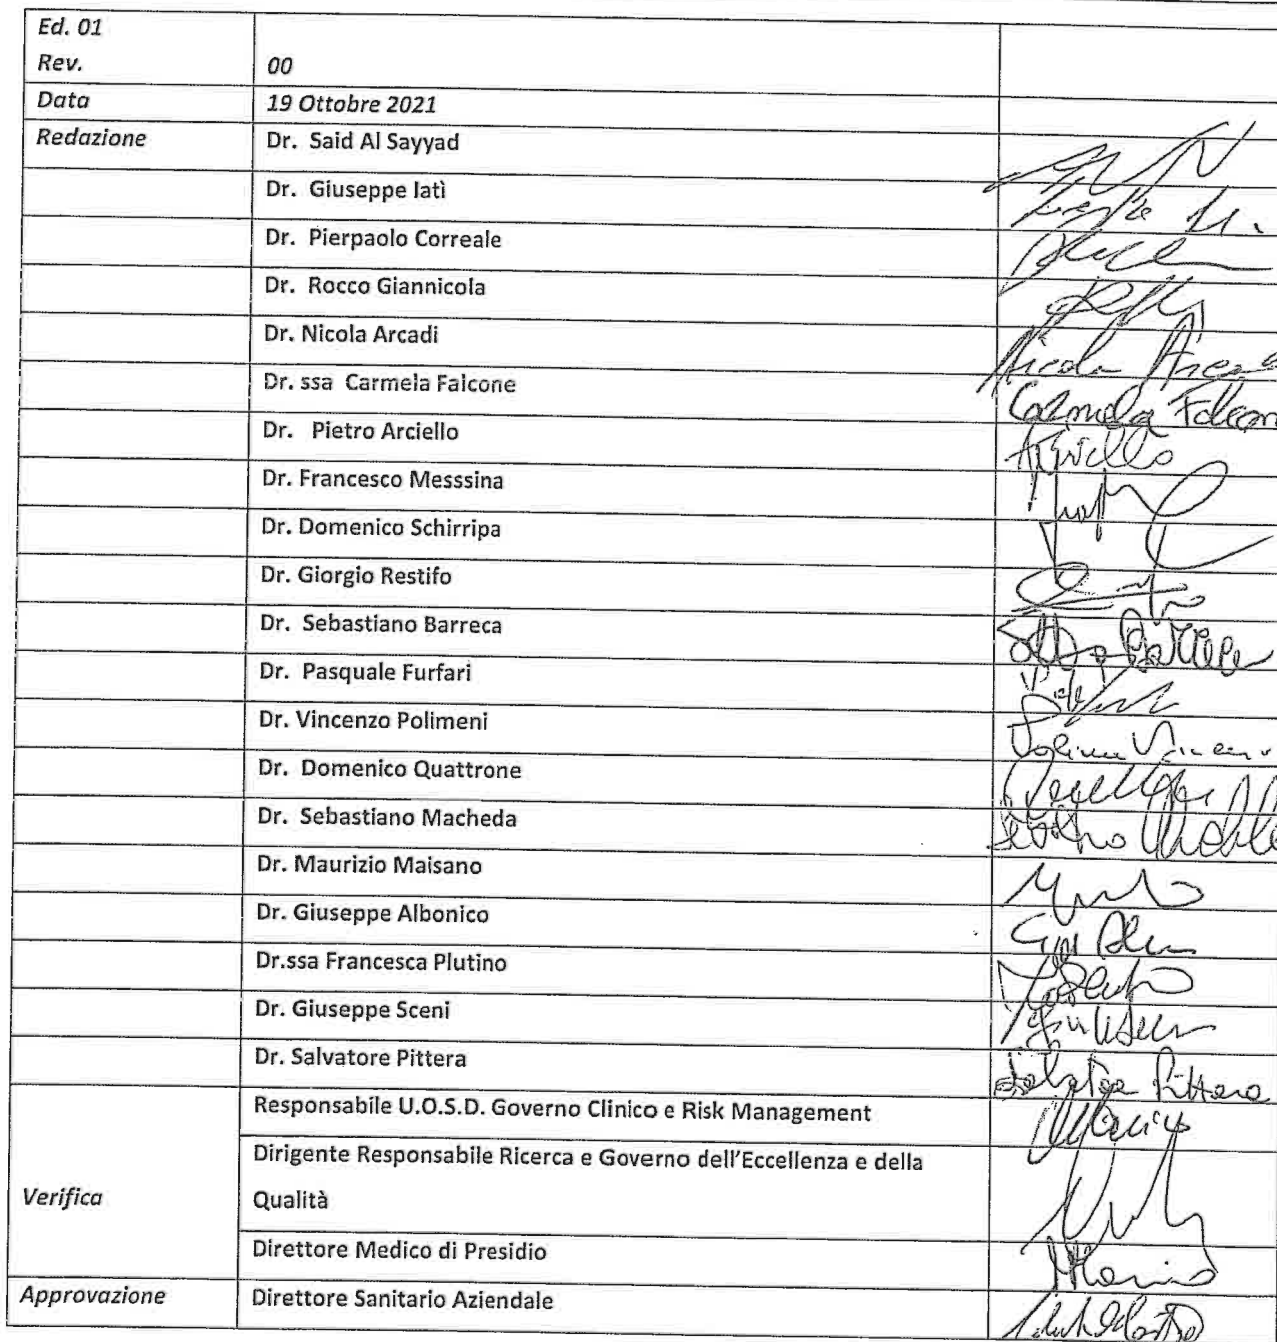 Ed. 01
Rev. 00
Data 19 Ottobre 2021
Redazione Dr. Said Al Sayyad
Dr. Giuseppe Iatì
Dr. Pierpaolo Correale
Dr. Rocco Giannicola
Dr. Nicola Arcadi
Nicola
Dr. ssa Carmela Falcone
Carmela Falcon
Dr. Pietro Arciello
Dr. Francesco Messsina
Dr. Domenico Schirripa
Dr. Giorgio Restifo
Dr. Sebastiano Barreca
Dr. Pasquale Furfari
Dr. Vincenzo Polimeni
Dr. Domenico Quattrone
Dr. Sebastiano Macheda
Dr. Maurizio Maisano
Dr. Giuseppe Albonico
Dr.ssa Francesca Plutino
Dr. Giuseppe Sceni
Dr. Salvatore Pittera
Salvatore Pittera
Responsabile U.O.S.D. Governo Clinico e Risk Management
Dirigente Responsabile Ricerca e Governo dell'Eccellenza e della
Verifica Qualità
Direttore Medico di Presidio
Approvazione Direttore Sanitario Aziendale